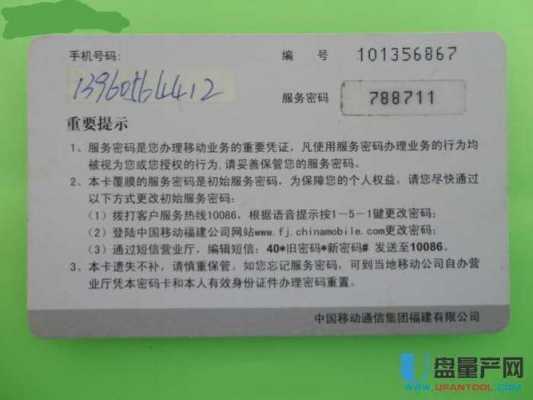 手机号码:
编 号 101356867
13960564412
服务密码 788711
重要提示
1、服务密码是您办理移动业务的重要凭证，凡使用服务密码办理业务的行为均
被视为您或您授权的行为,请妥善保管您的服务密码。
2、本卡覆膜的服务密码是初始服务密码，为保障您的个人权益，请您尽快通过
以下方式更改初始服务密码:
(1) 拨打客户服务热线10086，根据语音提示按1-5-1键更改密码;
(2) 登陆中国移动福建公司网站www.fj.chinamobile.com更改密码;
(3) 通过短信营业厅，编辑短信: 40*旧密码*新密码# 发送至10086。
3、本卡遗失不补，请慎重保管，如您忘记服务密码，可到当地移动公司自办营
业厅凭本密码卡和本人有效身份证件办理密码重置。
中国移动通信集团福建有限公司
U盘量产网
WWW.UPANTOOL.COM